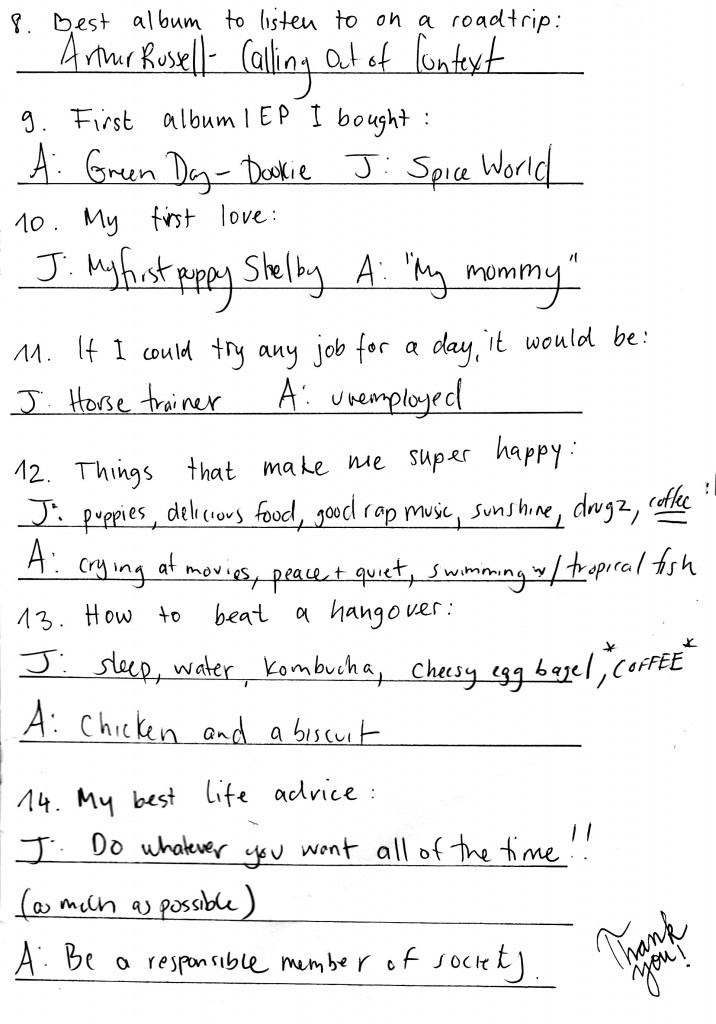 8. Best album to listen to on a roadtrip:
Arthur Russell - Calling Out of Context
9. First album | EP I bought:
A: Green Day - Dookie J: Spice World
10. My first love:
J: My first puppy Shelby A: "My mommy"
11. If I could try any job for a day, it would be:
J: Horse trainer A: unemployed
12. Things that make me super happy:
J: puppies, delicious food, good rap music, sunshine, drugz, coffee !!
A: crying at movies, peace + quiet, swimming w/ tropical fish
13. How to beat a hangover:
J: sleep, water, kombucha, cheesy egg bagel, *COFFEE*
A: Chicken and a biscuit
14. My best life advice:
J: Do whatever you want all of the time!!
(as much as possible)
A: Be a responsible member of society.
Thank
you!